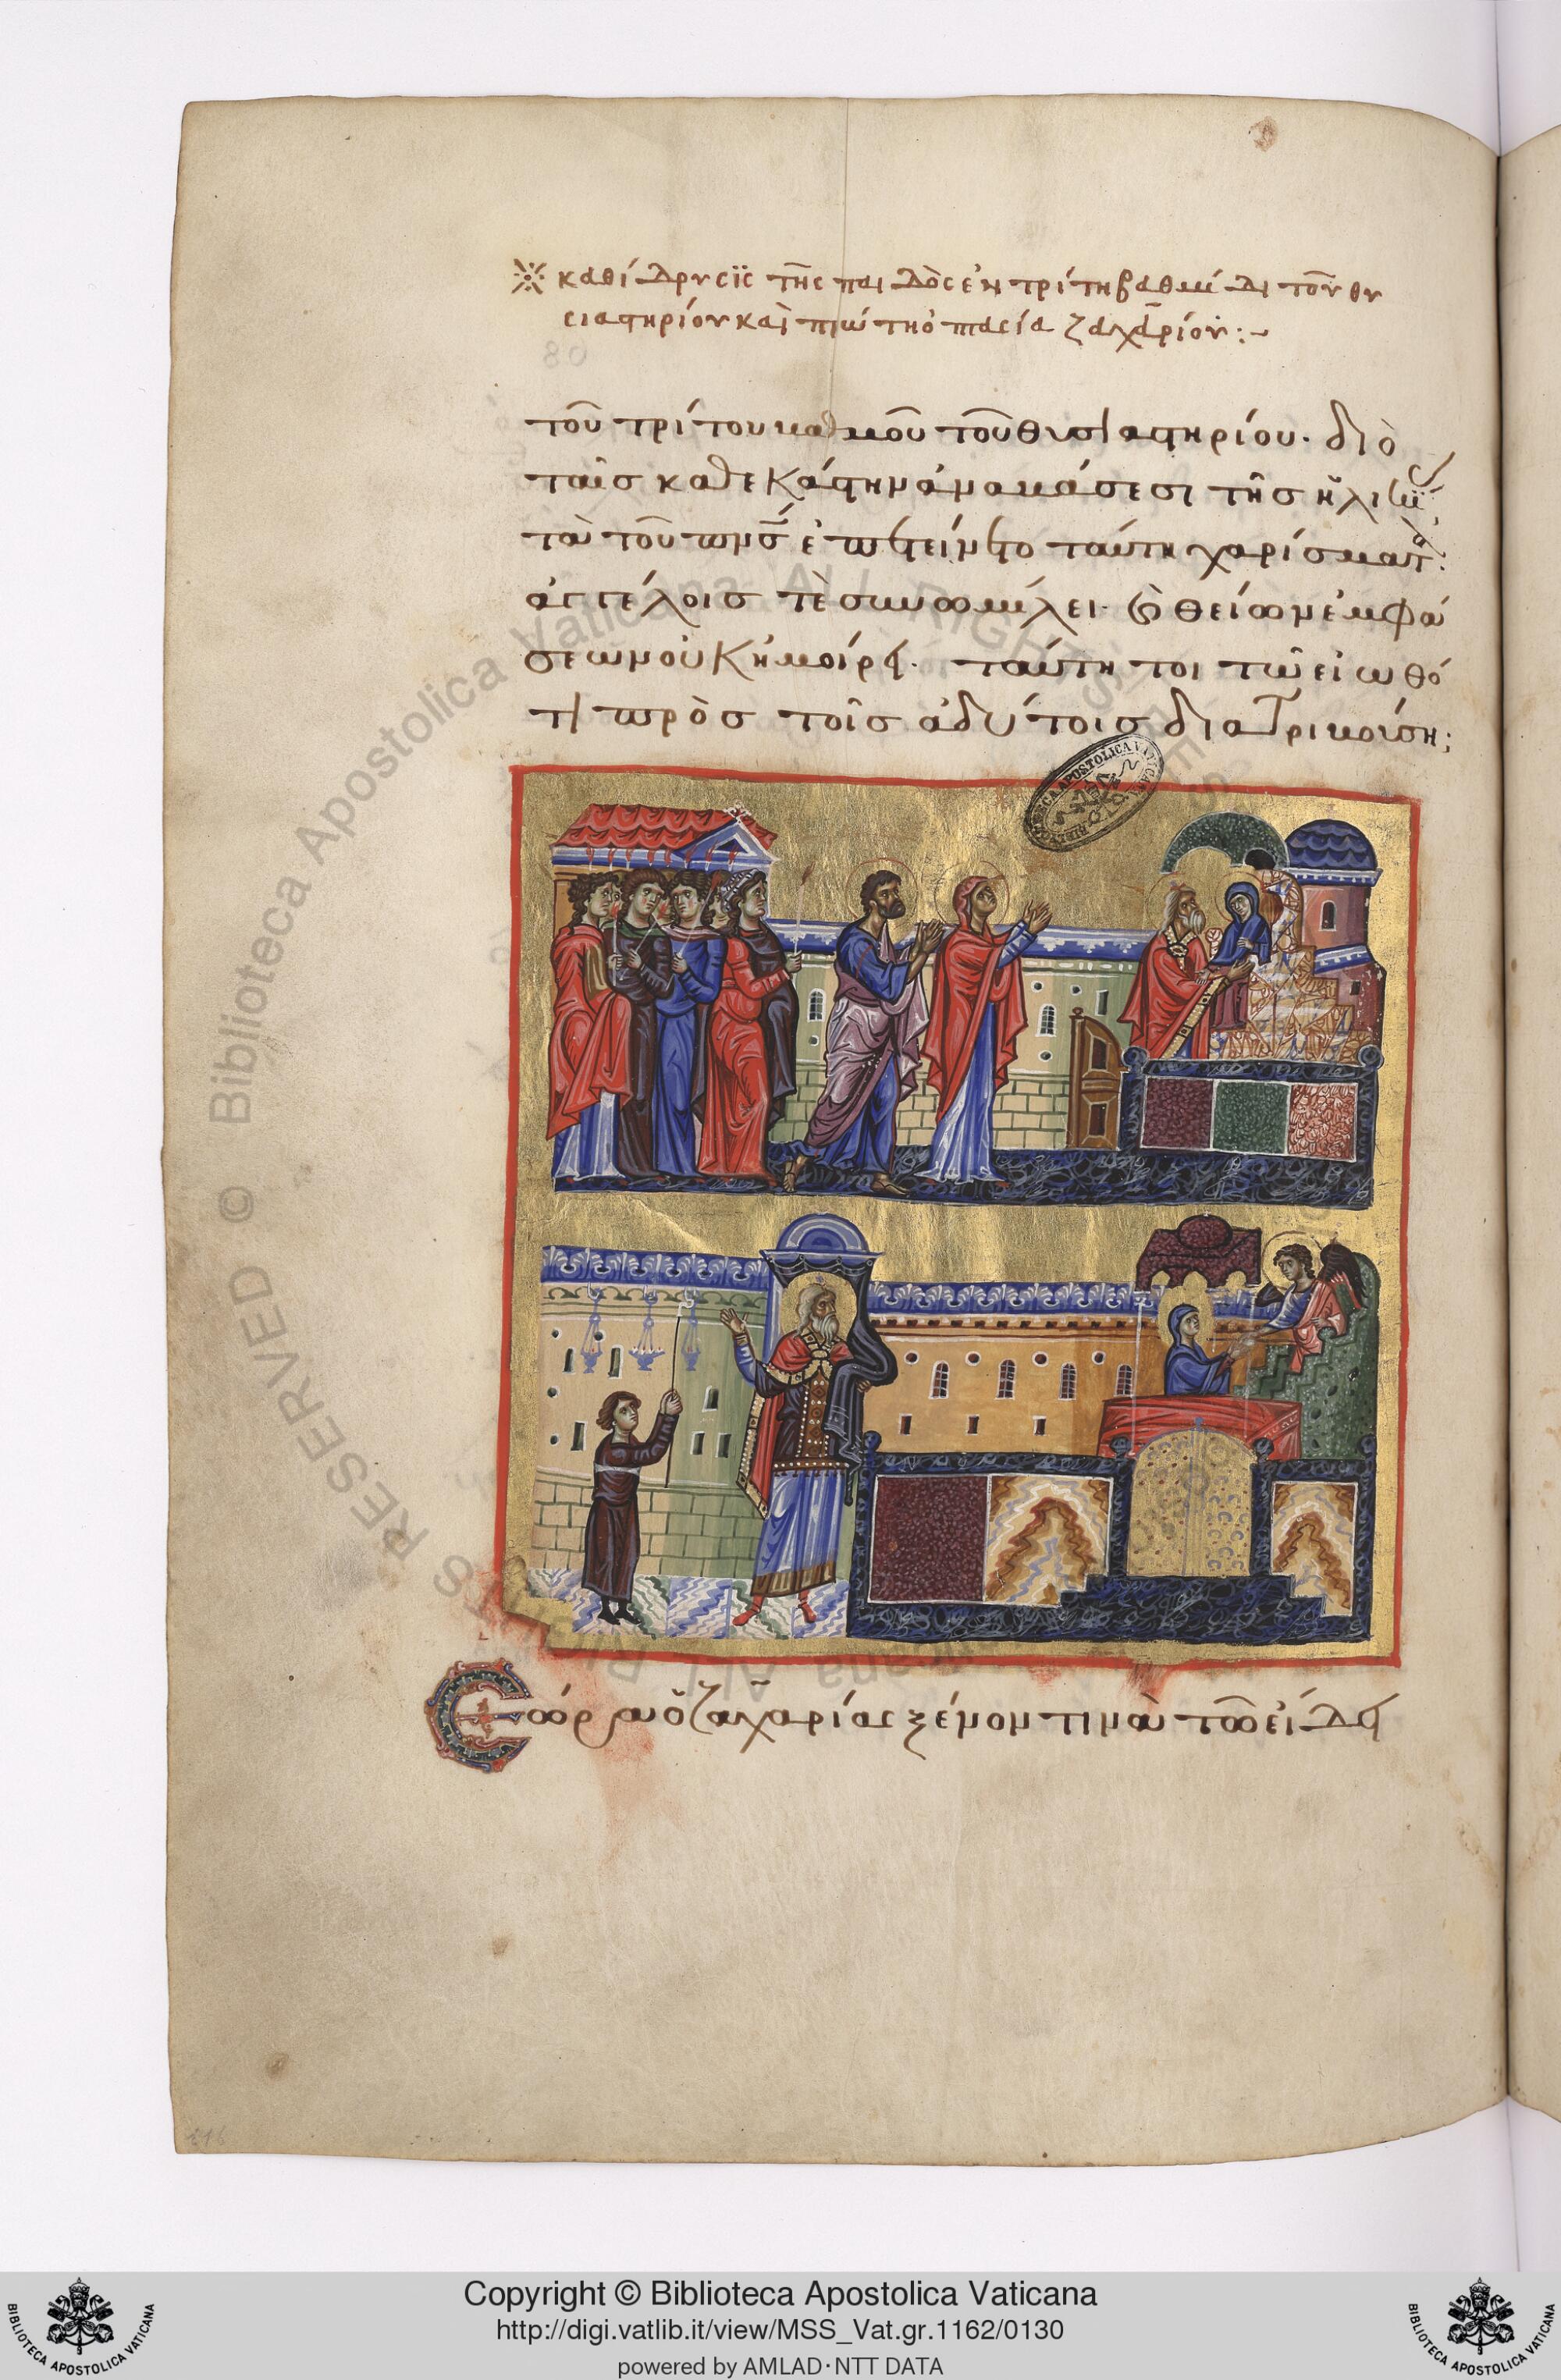 καθίδρυσϊς τῆς παιδὸς ἐν τρίτη βαθμίδι τοῦ θυ
σιαστηρίου καὶ πρώτη ὀπτασία ζαχαρίου:~
τοῦ τρίτου βαθμοῦ τοῦ θυσιαστηρίου. διὸ
ταῖσ καθεκάστην ἀναβάσεσι τῆσ ἡλικί
τὰ τοῦ πνσ ἐπετείνετο ταύτη χαρίσματα.
ἀγγέλοισ τὲ συνωμίλει. καὶ θείων ἐμφά
σεων οὐκ ἠμοίρει. ταύτη τοι τῶ εἰωθό
τι πρὸσ τοῖσ ἀδύτοισ διατριβούση;
Ἑώρα ὁ ζαχαρίας ξένον τινὰ τῶ εἴδει
116
Biblioteca Apostolica Vaticana ALL RIGHTS RESERVED ©
BIBLIOTECA APOSTOLICA VATICANA
Copyright © Biblioteca Apostolica Vaticana
http://digi.vatlib.it/view/MSS_Vat.gr.1162/0130
powered by AMLAD·NTT DATA
BIBLIOTECA APOSTOLICA VATICANA
BIBLIOTECA APOSTOLICA VATICANA